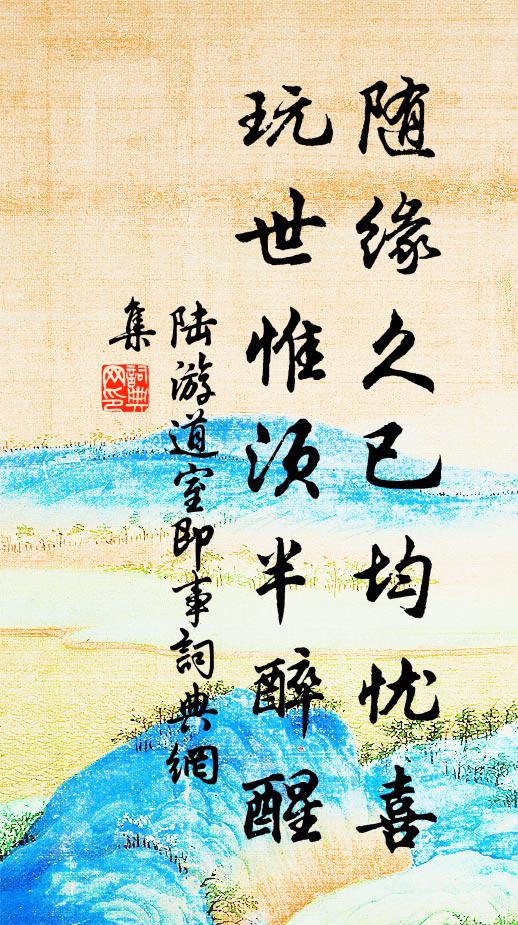 随缘久已均忧喜
玩世惟须半醉醒
陆游道室即事詞典網
集
詞典
网印